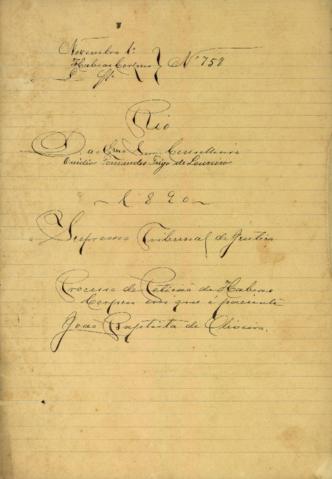 Novembro 1º
Habeas Corpus } Nº 758
Rio
Do Exmo Snr. Conselheiro
Ovidio Fernandes Trigo de Loureiro
1890
Supremo Tribunal de Justiça
Processo de Petição de Habeas
Corpus em que é paciente
João Baptista de Oliveira.